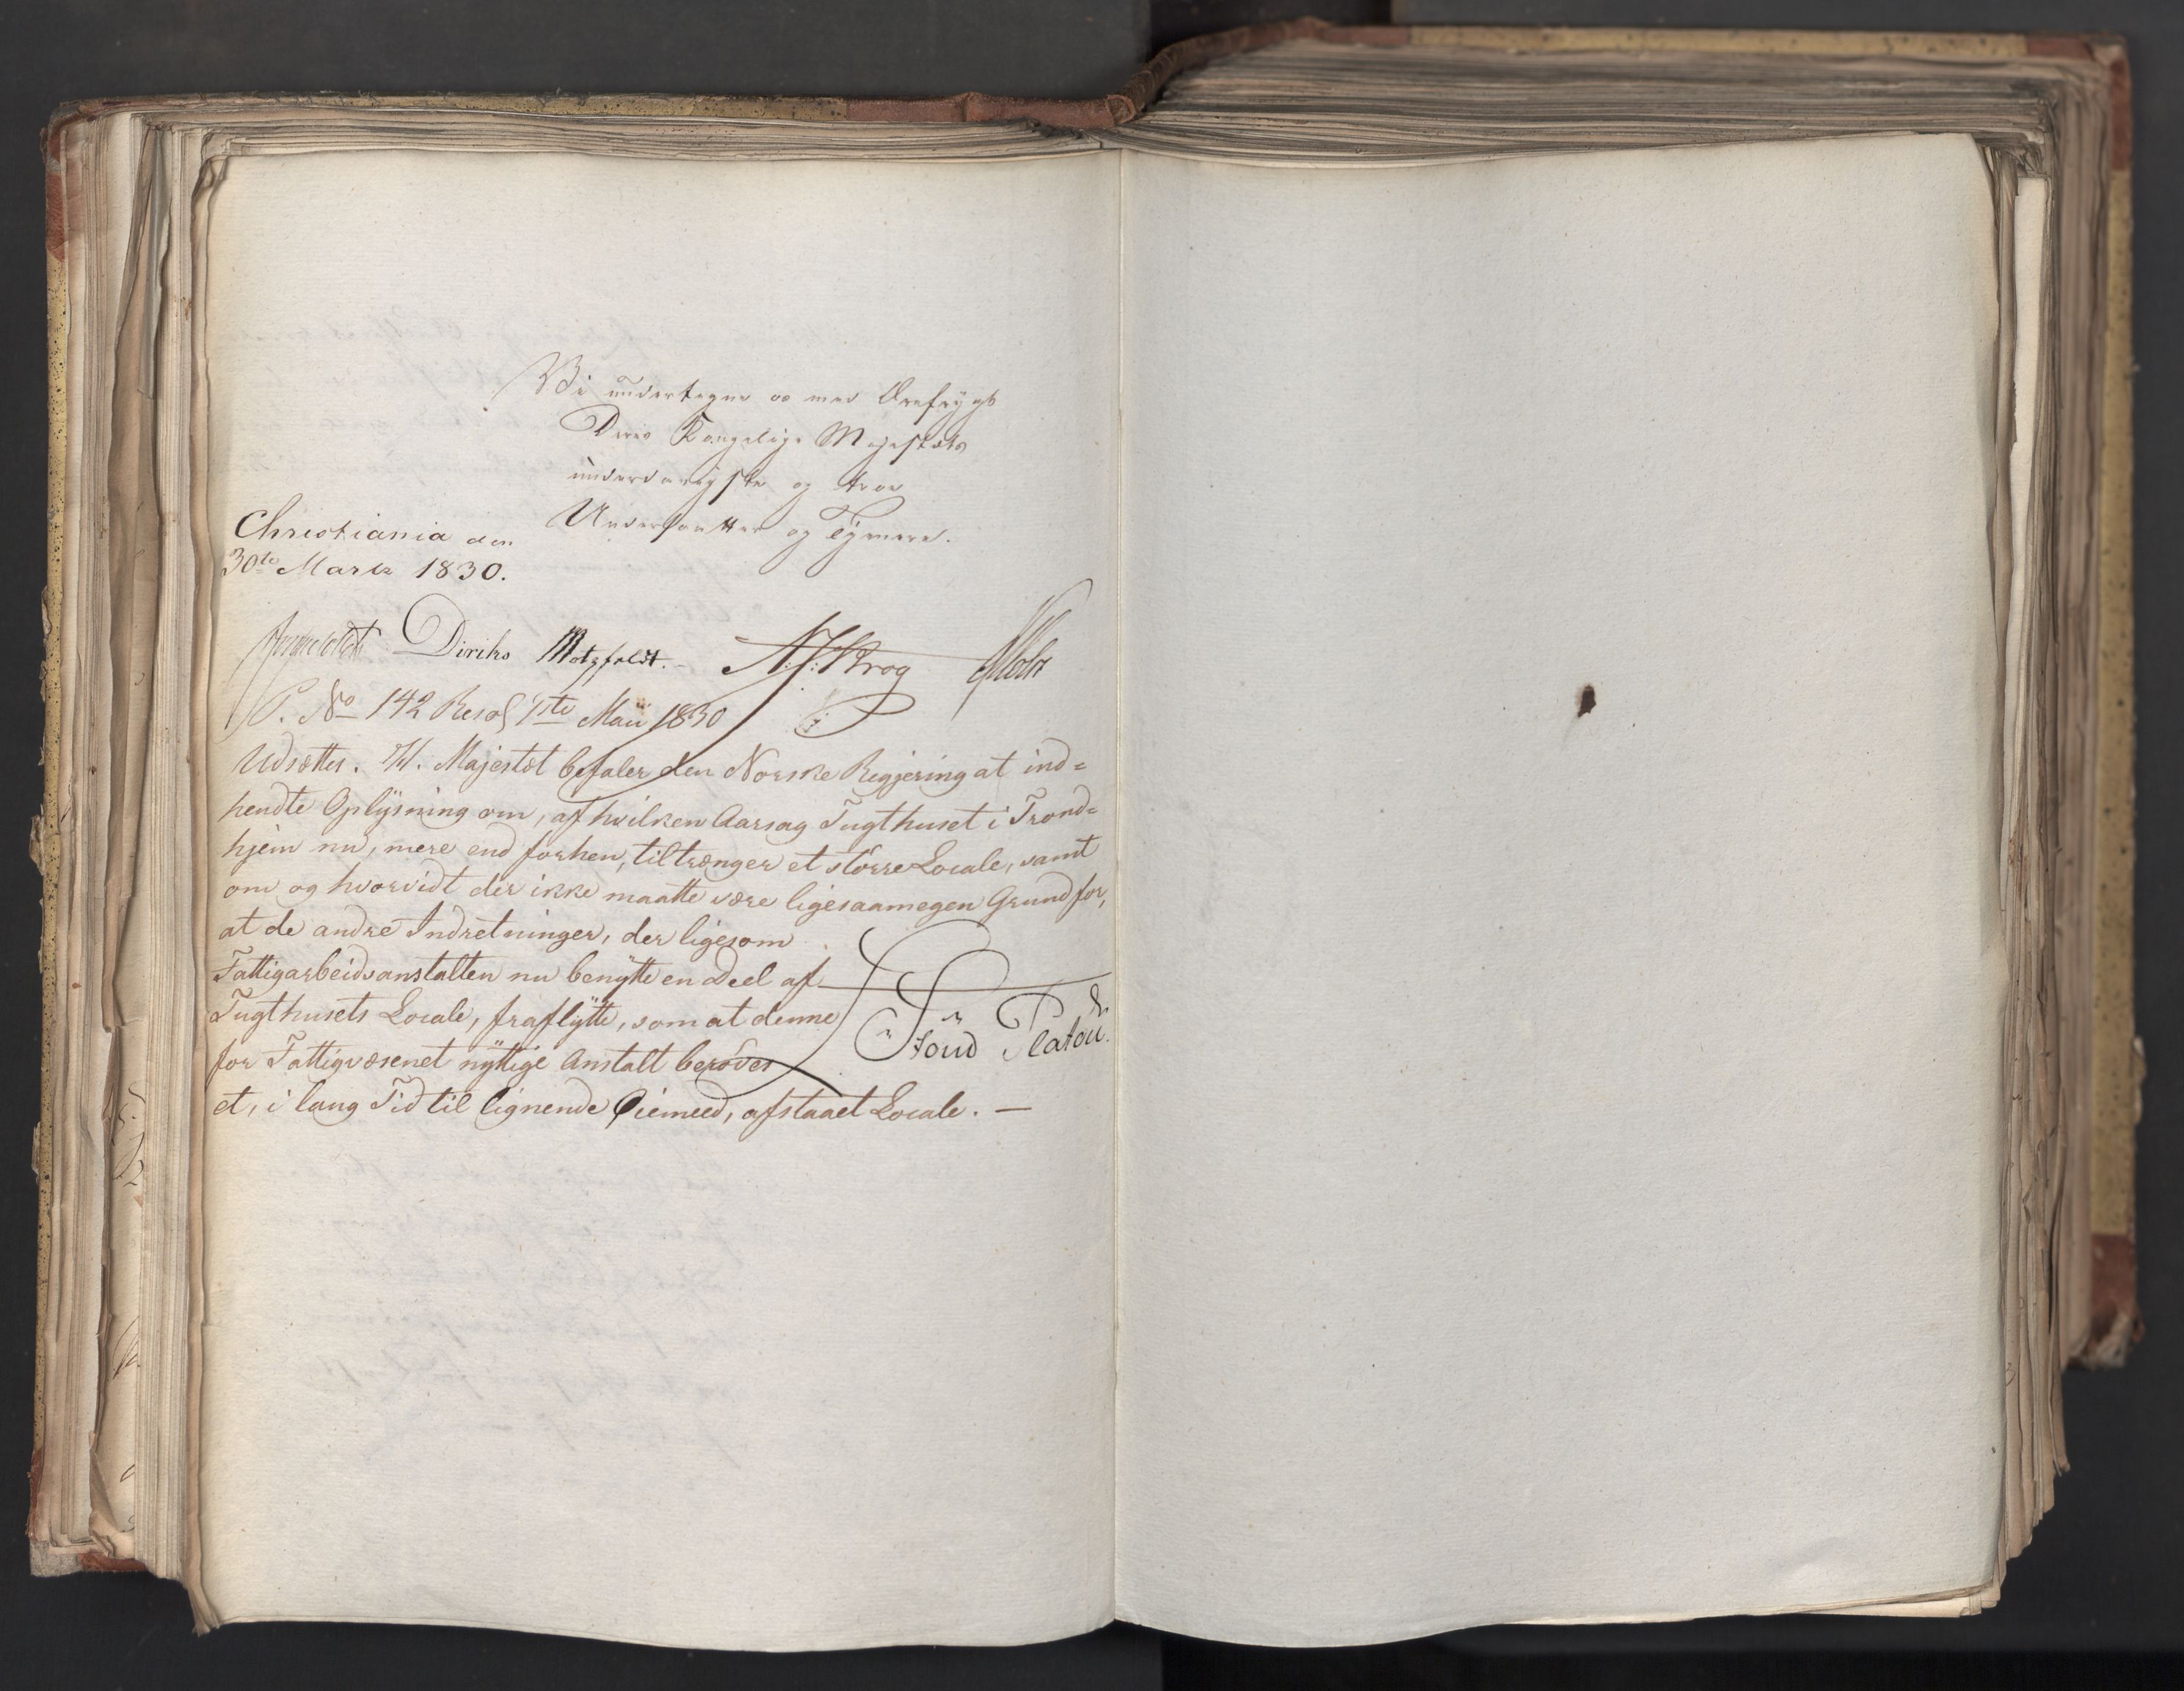 Vi undertegne os med Ærefrygt
Deres Kongelige Majestæts
underdanigste og troe
Undersaatter og Tjenere.
Christiania den
30te Marts 1830.
Diriks Motzfeldt. A. J. Krog Holst
P. No 142 Resol. 1ste Maii 1830
Udsættes. H. Majestæt befaler den Norske Regjering at ind=
hendte Oplysning om, af hvilken Aarsag Tugthuset i Trond=
hjem nu, mere end forhen, tiltrænger et större Locale, samt
om og hvorvidt der ikke maatte være ligesaamegen Grund for,
at de andre Indretninger, der ligesom
Fattigarbeidsanstalten nu benytte en Deel af
Tugthusets Locale, fraflytte, som at denne
for Fattigvæsenet nyttige Anstalt beröves
et, i lang Tid til lignende Öiemeed, afstaaet Locale. —
Platou.